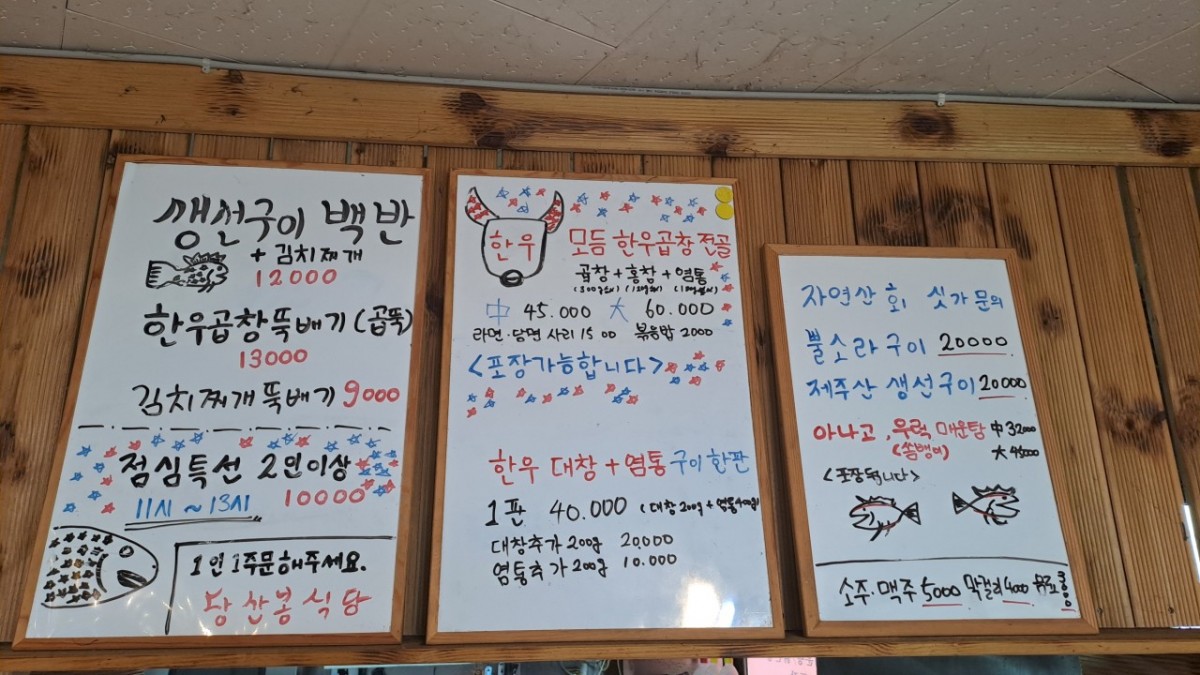 생선구이 백반
+ 김치찌개
12000
한우곱창뚝배기(곱뚝)
13000
김치찌개뚝배기 9000
점심특선 2인이상
11시~13시 10000
1인 1주문해주세요.
당산봉식당
한우 모듬 한우곱창전골
곱창+홍창+염통
中 45.000 大 60.000
라면·당면 사리 1500 볶음밥 2000
<포장가능합니다>
한우 대창+염통구이 한판
1판 40.000 (대창 200g+염통
대창추가 200g 20.000
염통추가 200g 10.000
자연산 회 싯가 문의
뿔소라구이 20000
제주산 생선구이 20000
아나고, 우럭 매운탕 中 32000
(쏨뱅이) 大
<포장됩니다>
소주·맥주 5000 막걸리 4000